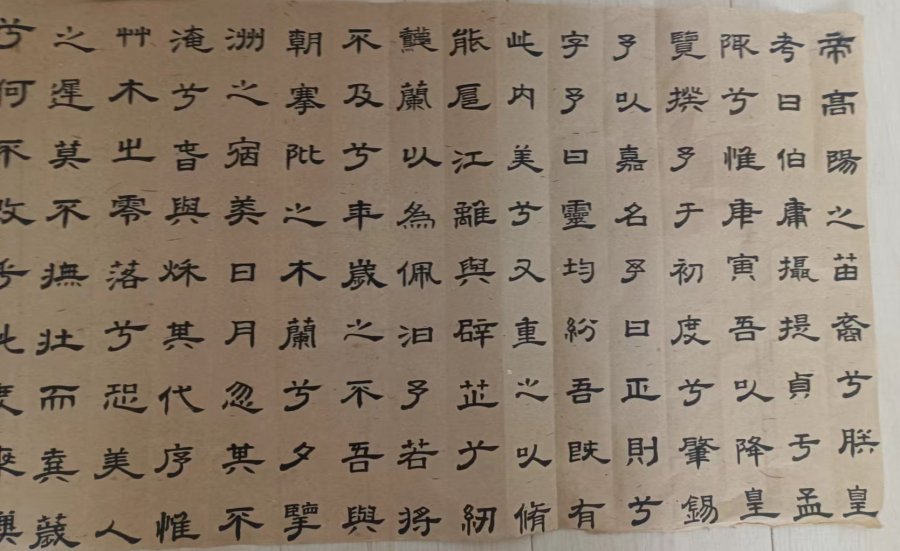 帝高陽之苗裔兮朕皇
考曰伯庸攝提貞于孟
陬兮惟庚寅吾以降皇
覽撰予于初度兮肇錫
予以嘉名予曰正則兮
字予曰靈均紛吾既有
此内美兮又重之以脩
能扈江離與辟芷兮紉
龝蘭以為佩汩予若將
不及兮年歲之不吾與
朝搴阰之木蘭兮夕擥
洲之宿美日月忽其不
淹兮春與秌其代序惟
艸木之零落兮恐美人
之遲莫不撫壯而棄薉
兮何不改乎此度